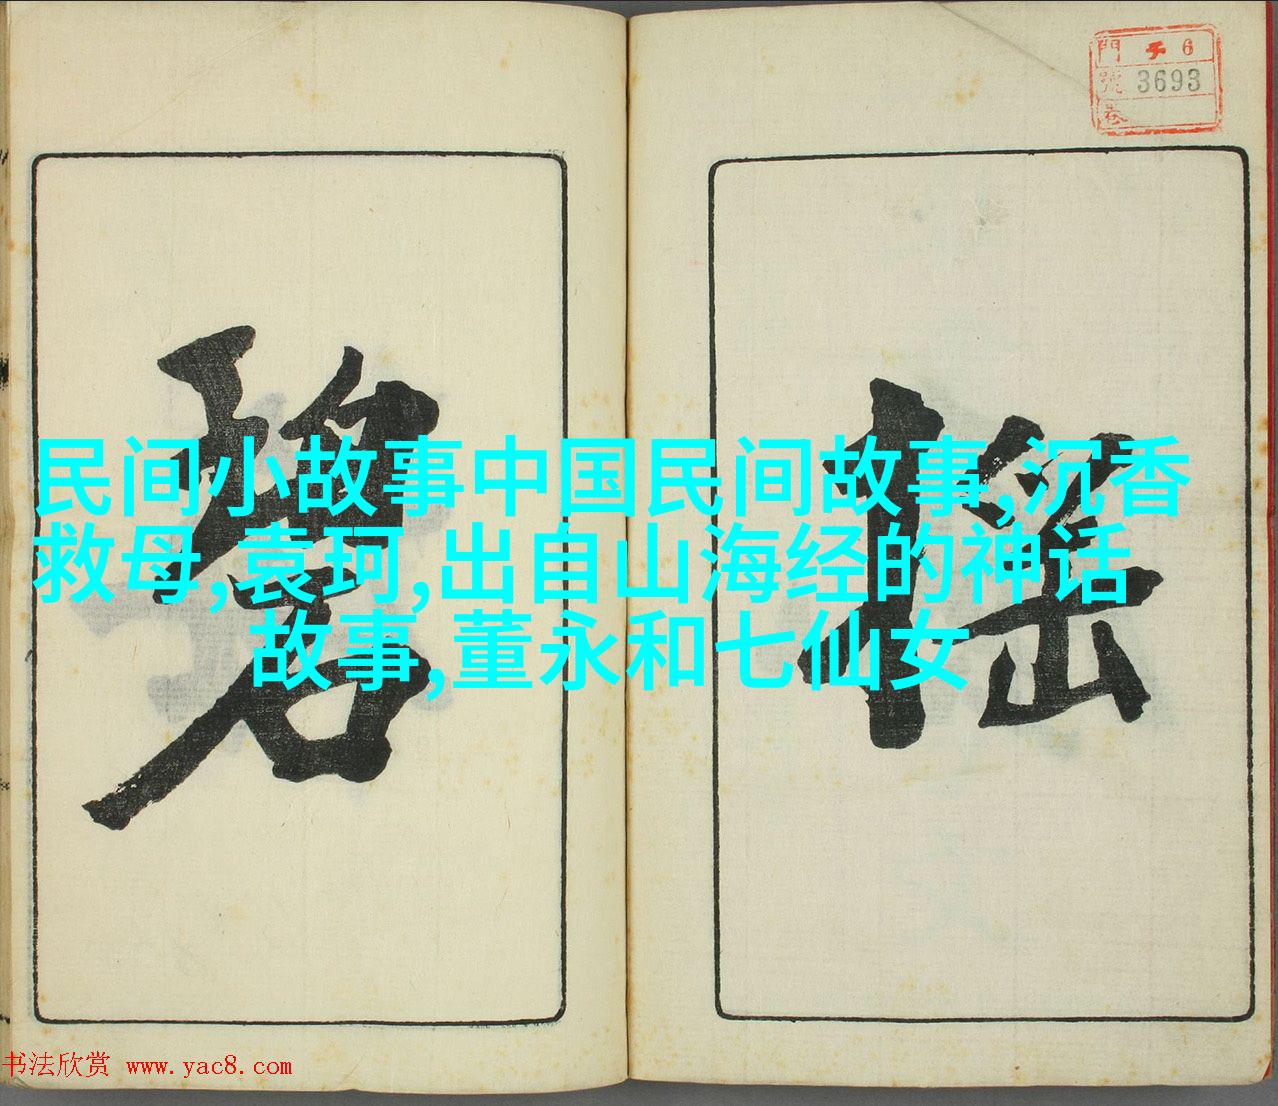 門 チ 6
號 3693
卷
民间小故事中国民间故事,沉香
救母,袁珂,出自山海经的神话
故事,董永和七仙女
摇
碧
书法欣赏 www.yac8.com